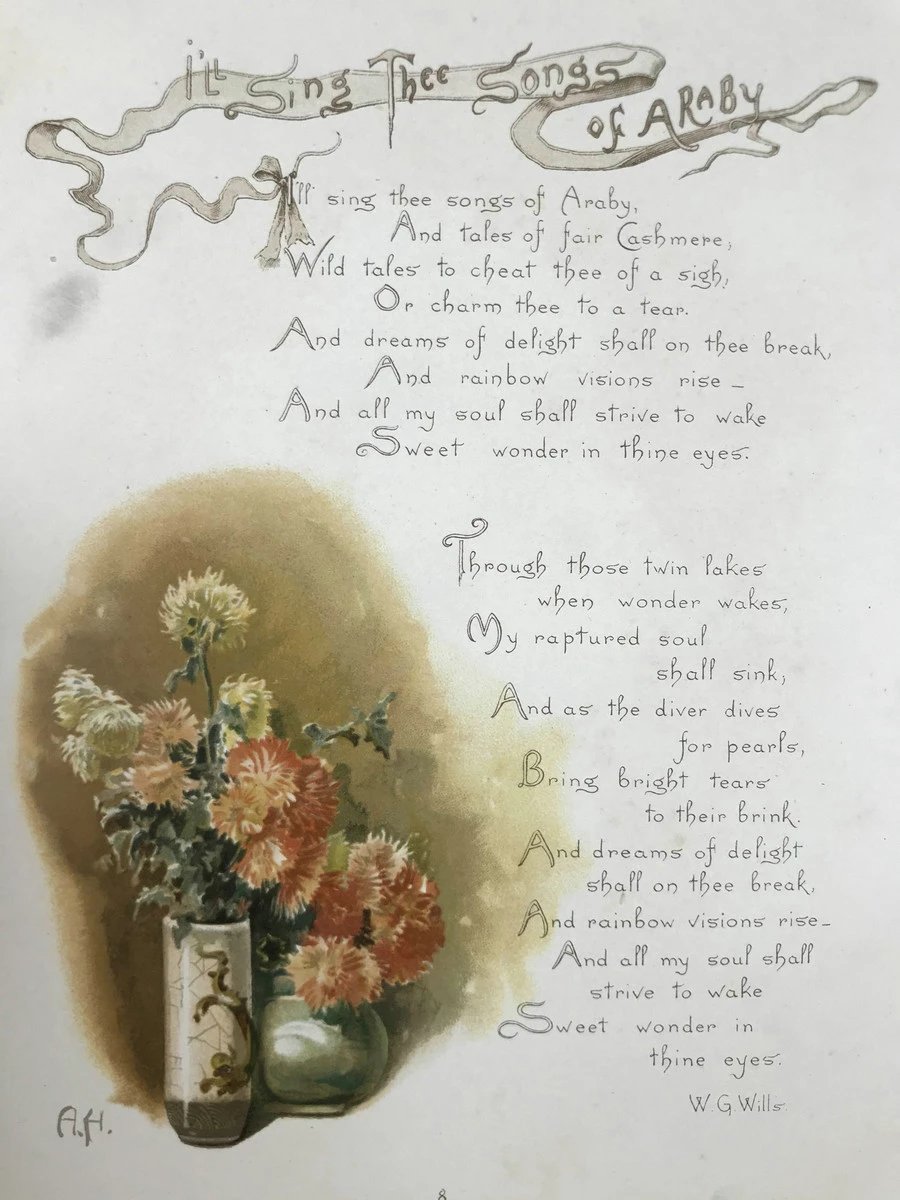 I'll Sing Thee Songs
of ARABY
I'll sing thee songs of Araby,
And tales of fair Cashmere,
Wild tales to cheat thee of a sigh,
Or charm thee to a tear.
And dreams of delight shall on thee break,
And rainbow visions rise –
And all my soul shall strive to wake
Sweet wonder in thine eyes.
Through those twin lakes
when wonder wakes,
My raptured soul
shall sink,
And as the diver dives
for pearls,
Bring bright tears
to their brink.
And dreams of delight
shall on thee break,
And rainbow visions rise–
And all my soul shall
strive to wake
Sweet wonder in
thine eyes.
W.G.Wills.
A.H.
8